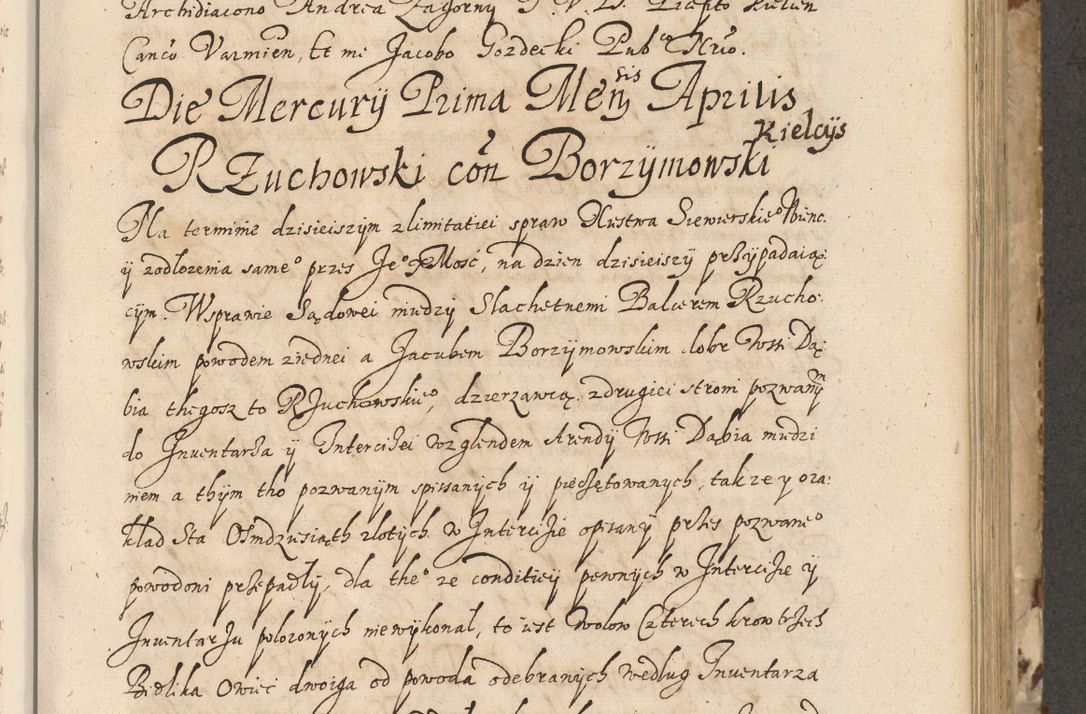 Archidiacono Andrea Zagorny J. V. D. Plepto Kielcen
Canco Varmien, Et me Jacobo Gozdecki Pubco Nrio.
Die Mercurÿ Prima Mensis Aprilis
Kielcÿs
RZuchowski con Borzÿmowski
Na terminie dzisieiszÿm zlimitatiei spraw Xustwa Siewierskieo
ÿ zodlozenia sameo przes Jeo XMosć, na dzien dzisieiszÿ prsÿpadaią:
cÿm. Wsprawie Sądowei miedzÿ Slachetnemi Balcerem Rzucho:
wskim powodem ziednei a Jacubem Borzÿmowskim dobr Wsi Dą:
bia thegosz to RZuchowskieo, dzierzawcą, zdrugiei stroni pozwanÿm
do Inventarsa ÿ Intercisei wzglendem Arendÿ Wsi Dąbia miedzi
niem a thÿm tho pozwanÿm spissanÿch ÿ piecsętowanÿch, takze y oza:
klad Sta Osmdziesiąth zlotÿch w Intercisie opisanÿ prses pozwaneo
powodoni prsepadlÿ, dla theo ze conditieÿ pewnÿch w Intercisie ÿ
Inventarsu polozonÿch niewÿkonal, to iest Wolow Czterech krow trsech
Bidlika Owiec dwoiga od powoda odebranÿch według Inventarza